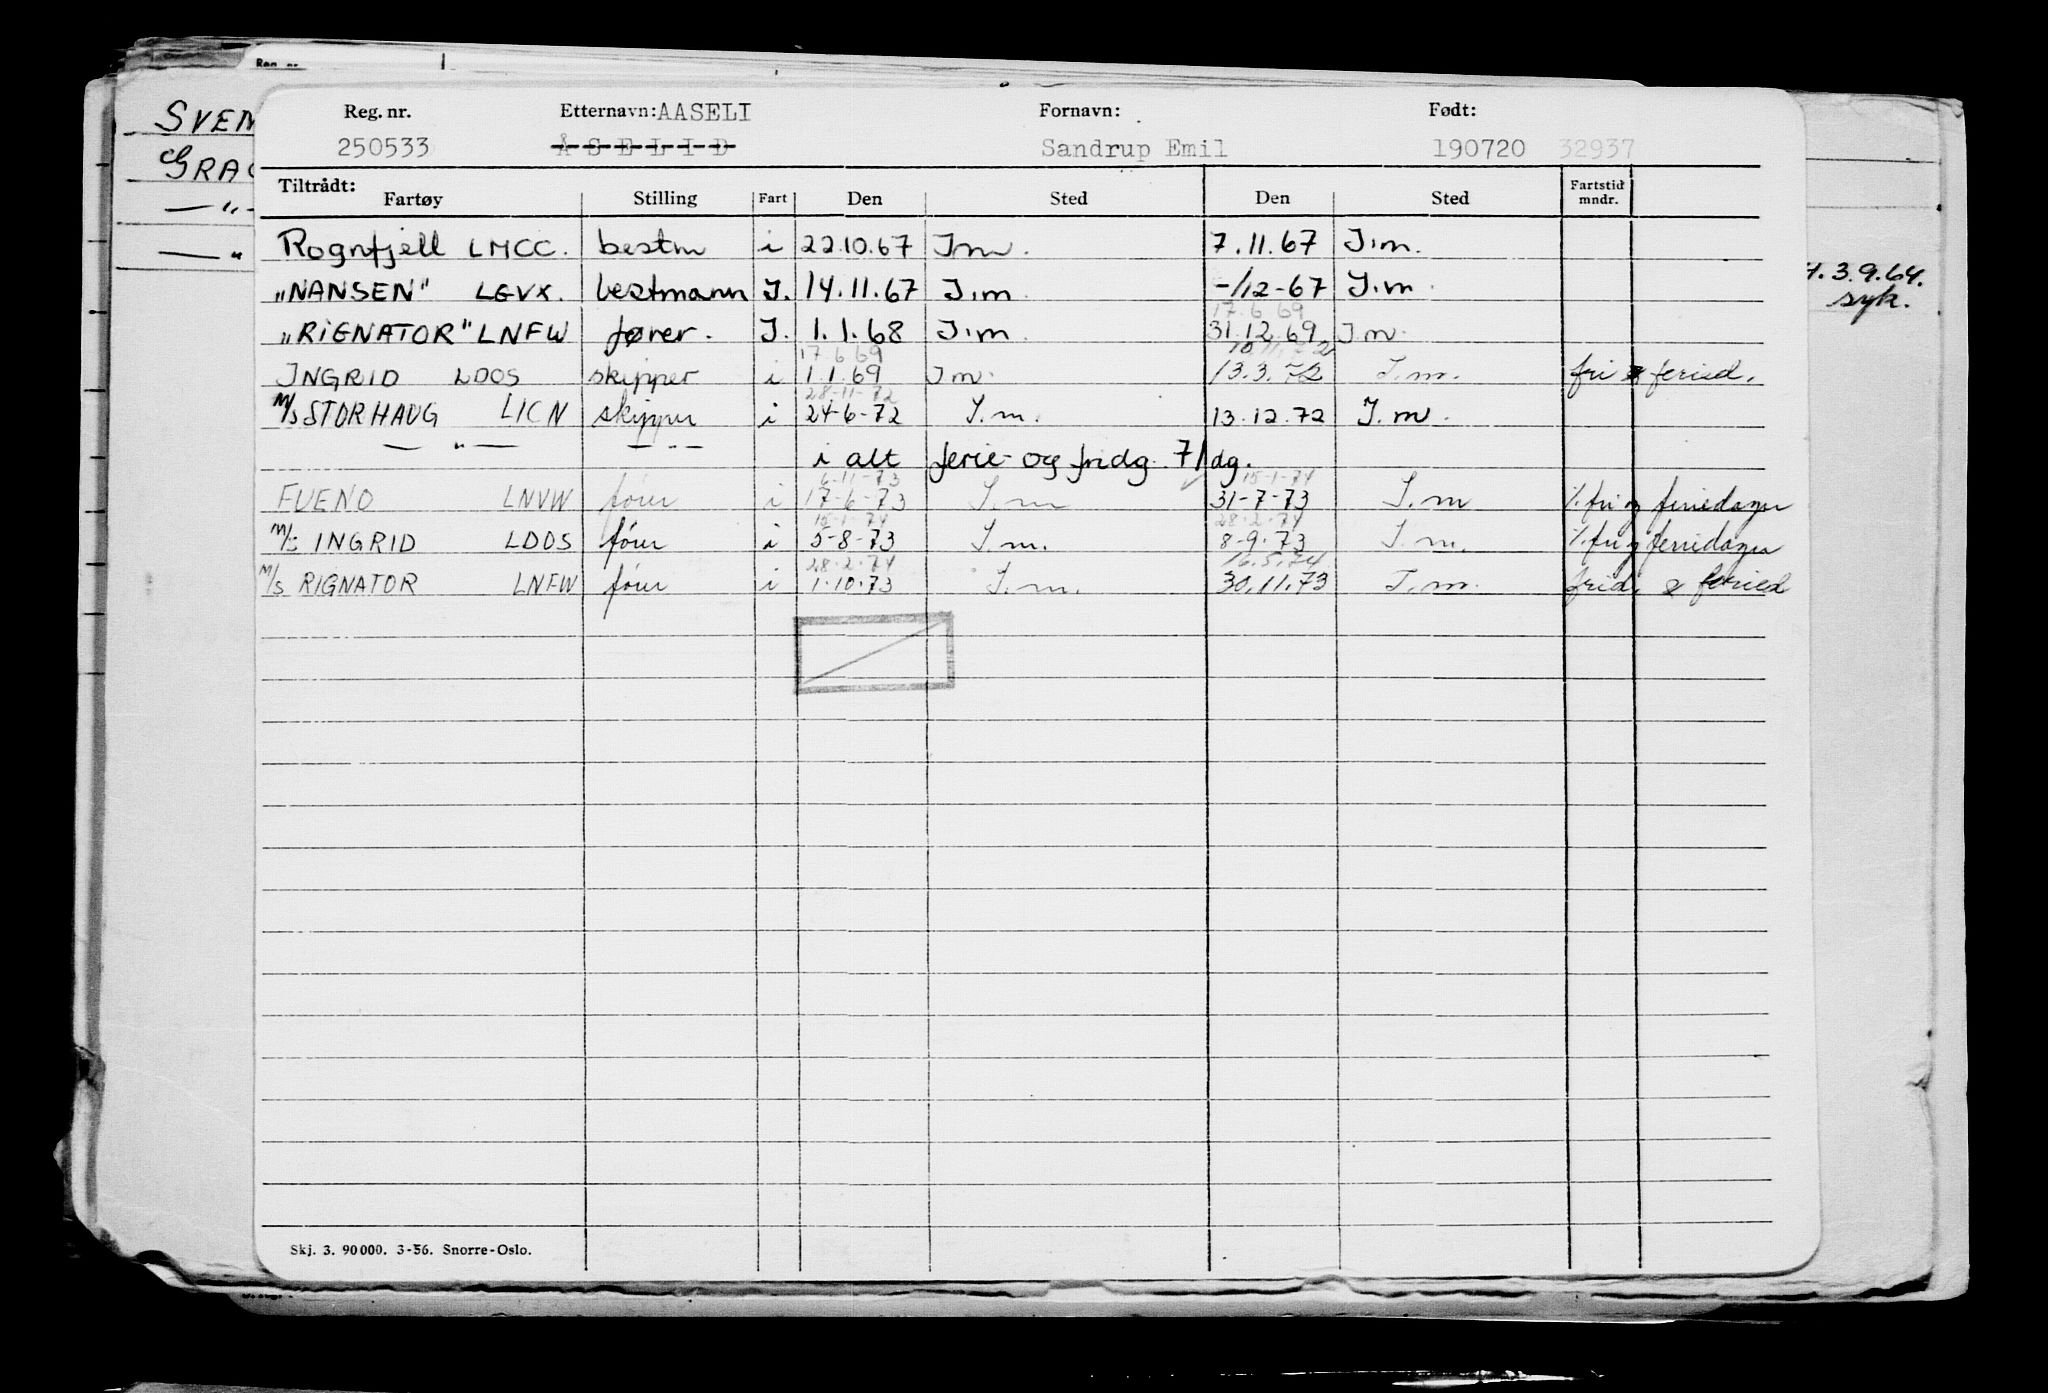 Reg. nr.
SVEN
GRAC
— „ -
— „
Reg. nr. Etternavn: AASELI Fornavn: Født:
250533 ÅSELID Sandrup Emil 190720 32937
Tiltrådt:
Fartøy Stilling Fart Den Sted Den Sted Fartstid mndr.
Rognfjell LMCC. bestm i 22.10.67 Im. 7.11.67 I.m.
„NANSEN" LGVX. bestmann I. 14.11.67 I.m. -/12-67 I.m.
17.6 69
„RIGNATOR" LNFW fører. I. 1.1.68 I.m. 31.12.69 I.m.
17 6 69
INGRID LDOS skipper i 1.1.69 Im. 13.3.72 I.m. fri & feried.
28-11-72
M/S STORHAUG LICN skipper i 24-6-72 I.m. 13.12.72 I.m.
— „ — — „ — i alt ferie- og fridg. 71 dg.
6-11-73 15-1-74
FUENO LNVW fører i 17-6-73 I.m 31-7-73 I.m ./. fri og feriedager
15-1-74 28-2-74
M/S INGRID LDOS fører i 5-8-73 I.m. 8-9-73 I.m. ./. fri og feriedager
28-2-74 16.5.74
M/S RIGNATOR LNFW fører i 1-10-73 I.m. 30.11.73 I.m. frid. & feried
3.9.64.
syk.
Skj. 3. 90000. 3-56. Snorre-Oslo.